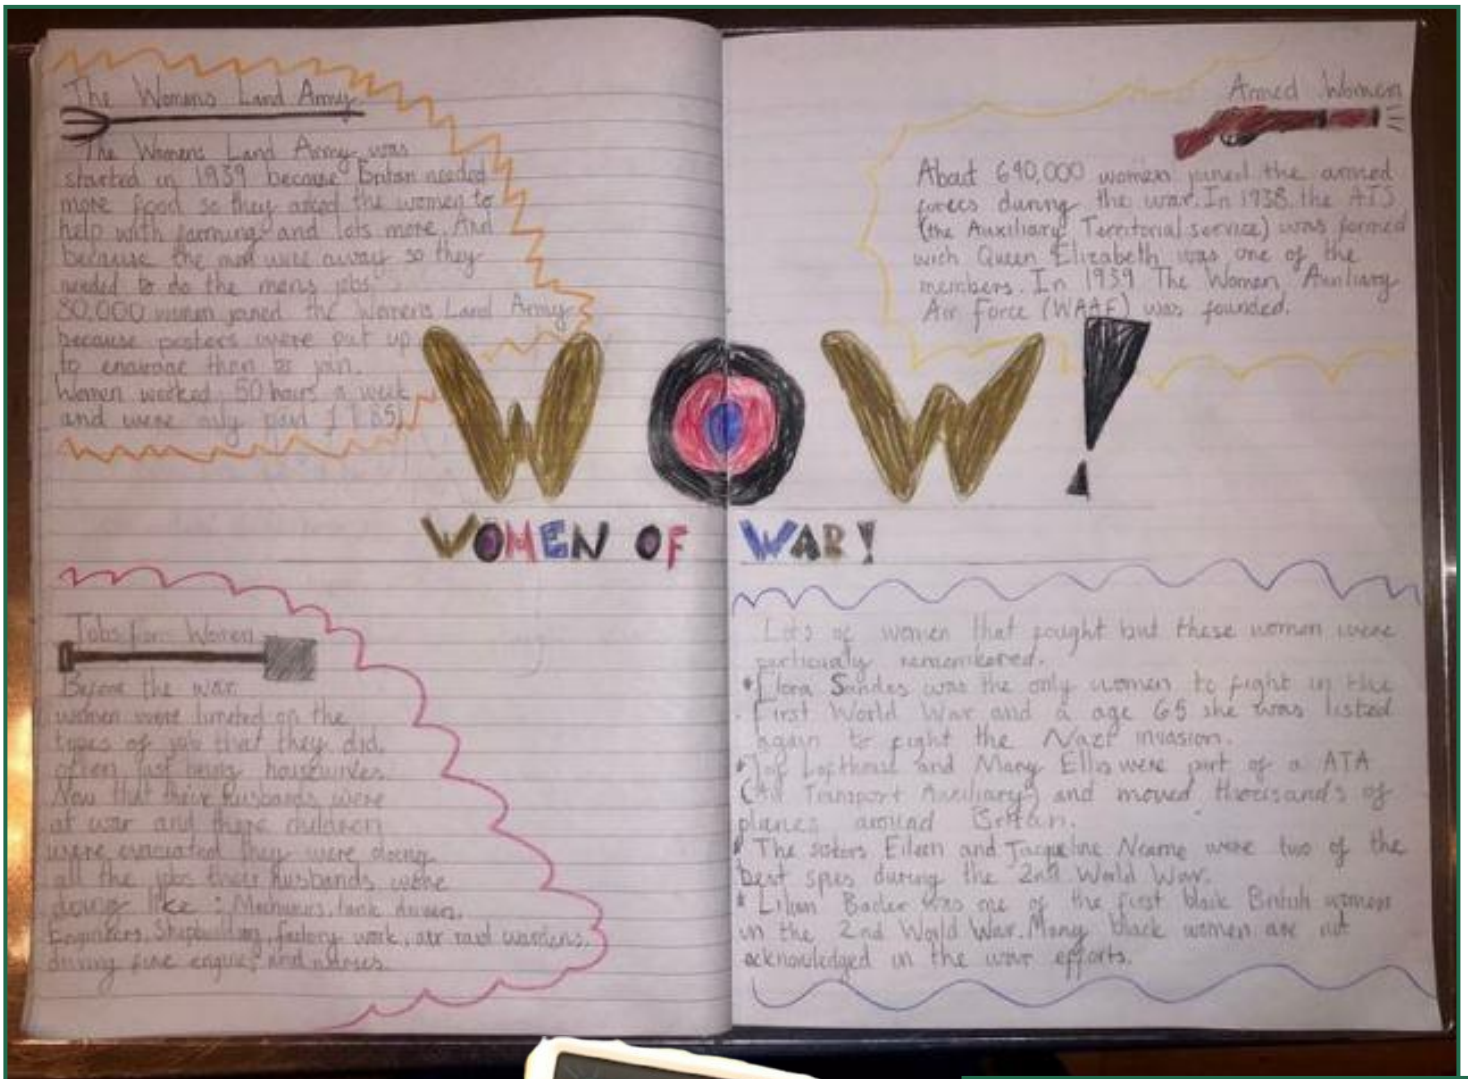 The Womens Land Army
The Womens Land Army was
started in 1939 because Britan needed
more food so they asked the women to
help with farming and lots more. And
because the men were away so they
needed to do the mens jobs.
80,000 women joined the Womens Land Army
because posters were put up
to them to join.
Women worked 50 hours a week
and were only paid
Armed Women
About 640,000 women joined the armed
forces during the war. In 1938 the ATS
(the Auxiliary Territorial service) was formed
wich Queen Elizabeth was one of the
members. In 1939 The Women Auxiliary
Air Force (WAAF) was founded.
WOW!
WOMEN OF WAR!
Jobs for Women
Before the war
women were limeted on the
types of job that they did,
often just being housewives.
Now that their husbands were
at war and there children
were evacuated they were doing
all the jobs their husbands were
doing like : Mechanics, tank drivers,
Engineers, Shipbuilding, factory work, air raid wardens,
driving fire engines and nurses.
Lots of women that fought but these women were
remembered.
* Flora Sandes was the only women to fight in the
First World War and a age 65 she was listed
again to fight the Nazi invasion.
* Lofthouse and Mary Ellis were part of a ATA
(Air Transport Auxiliary) and moved thousands of
planes around Britan.
* The sisters Eileen and Jacqueline Nearne were two of the
best spies during the 2nd World War.
* Lilian Bader was one of the first black British women
in the 2nd World War. Many black women are not
acknowledged in the war efforts.